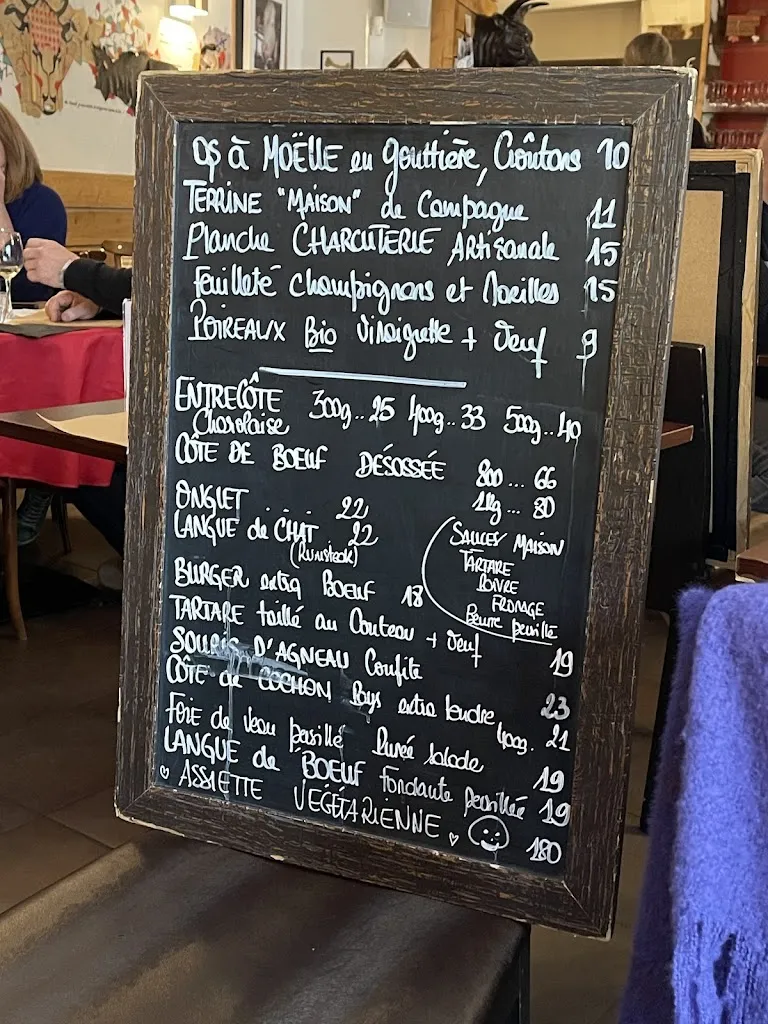 OS à MOËLLE en Gouttière, Croûtons 10
TERRINE "MAISON" de Campagne 11
Planche CHARCUTERIE Artisanale 15
Feuilleté Champignons et Morilles 15
POIREAUX Bio Vinaigrette + Oeuf 9
ENTRECÔTE 300g.. 25 400g.. 33 500g.. 40
Charolaise
CÔTE DE BOEUF DÉSOSSÉE 800 ... 66
1kg ... 80
ONGLET .... 22
LANGUE de CHAT 22
(Rumsteak)
SAUCES MAISON
TARTARE
POIVRE
FROMAGE
Beurre persillé
BURGER extra BOEUF 18
TARTARE taillé au Couteau + Oeuf 19
SOURIS D'AGNEAU Confite 23
CÔTE de COCHON Pays extra tendre 400g. 21
Foie de Veau persillé Purée Salade 19
LANGUE de BOEUF fondante persillée 19
ASSIETTE VÉGÉTARIENNE 180